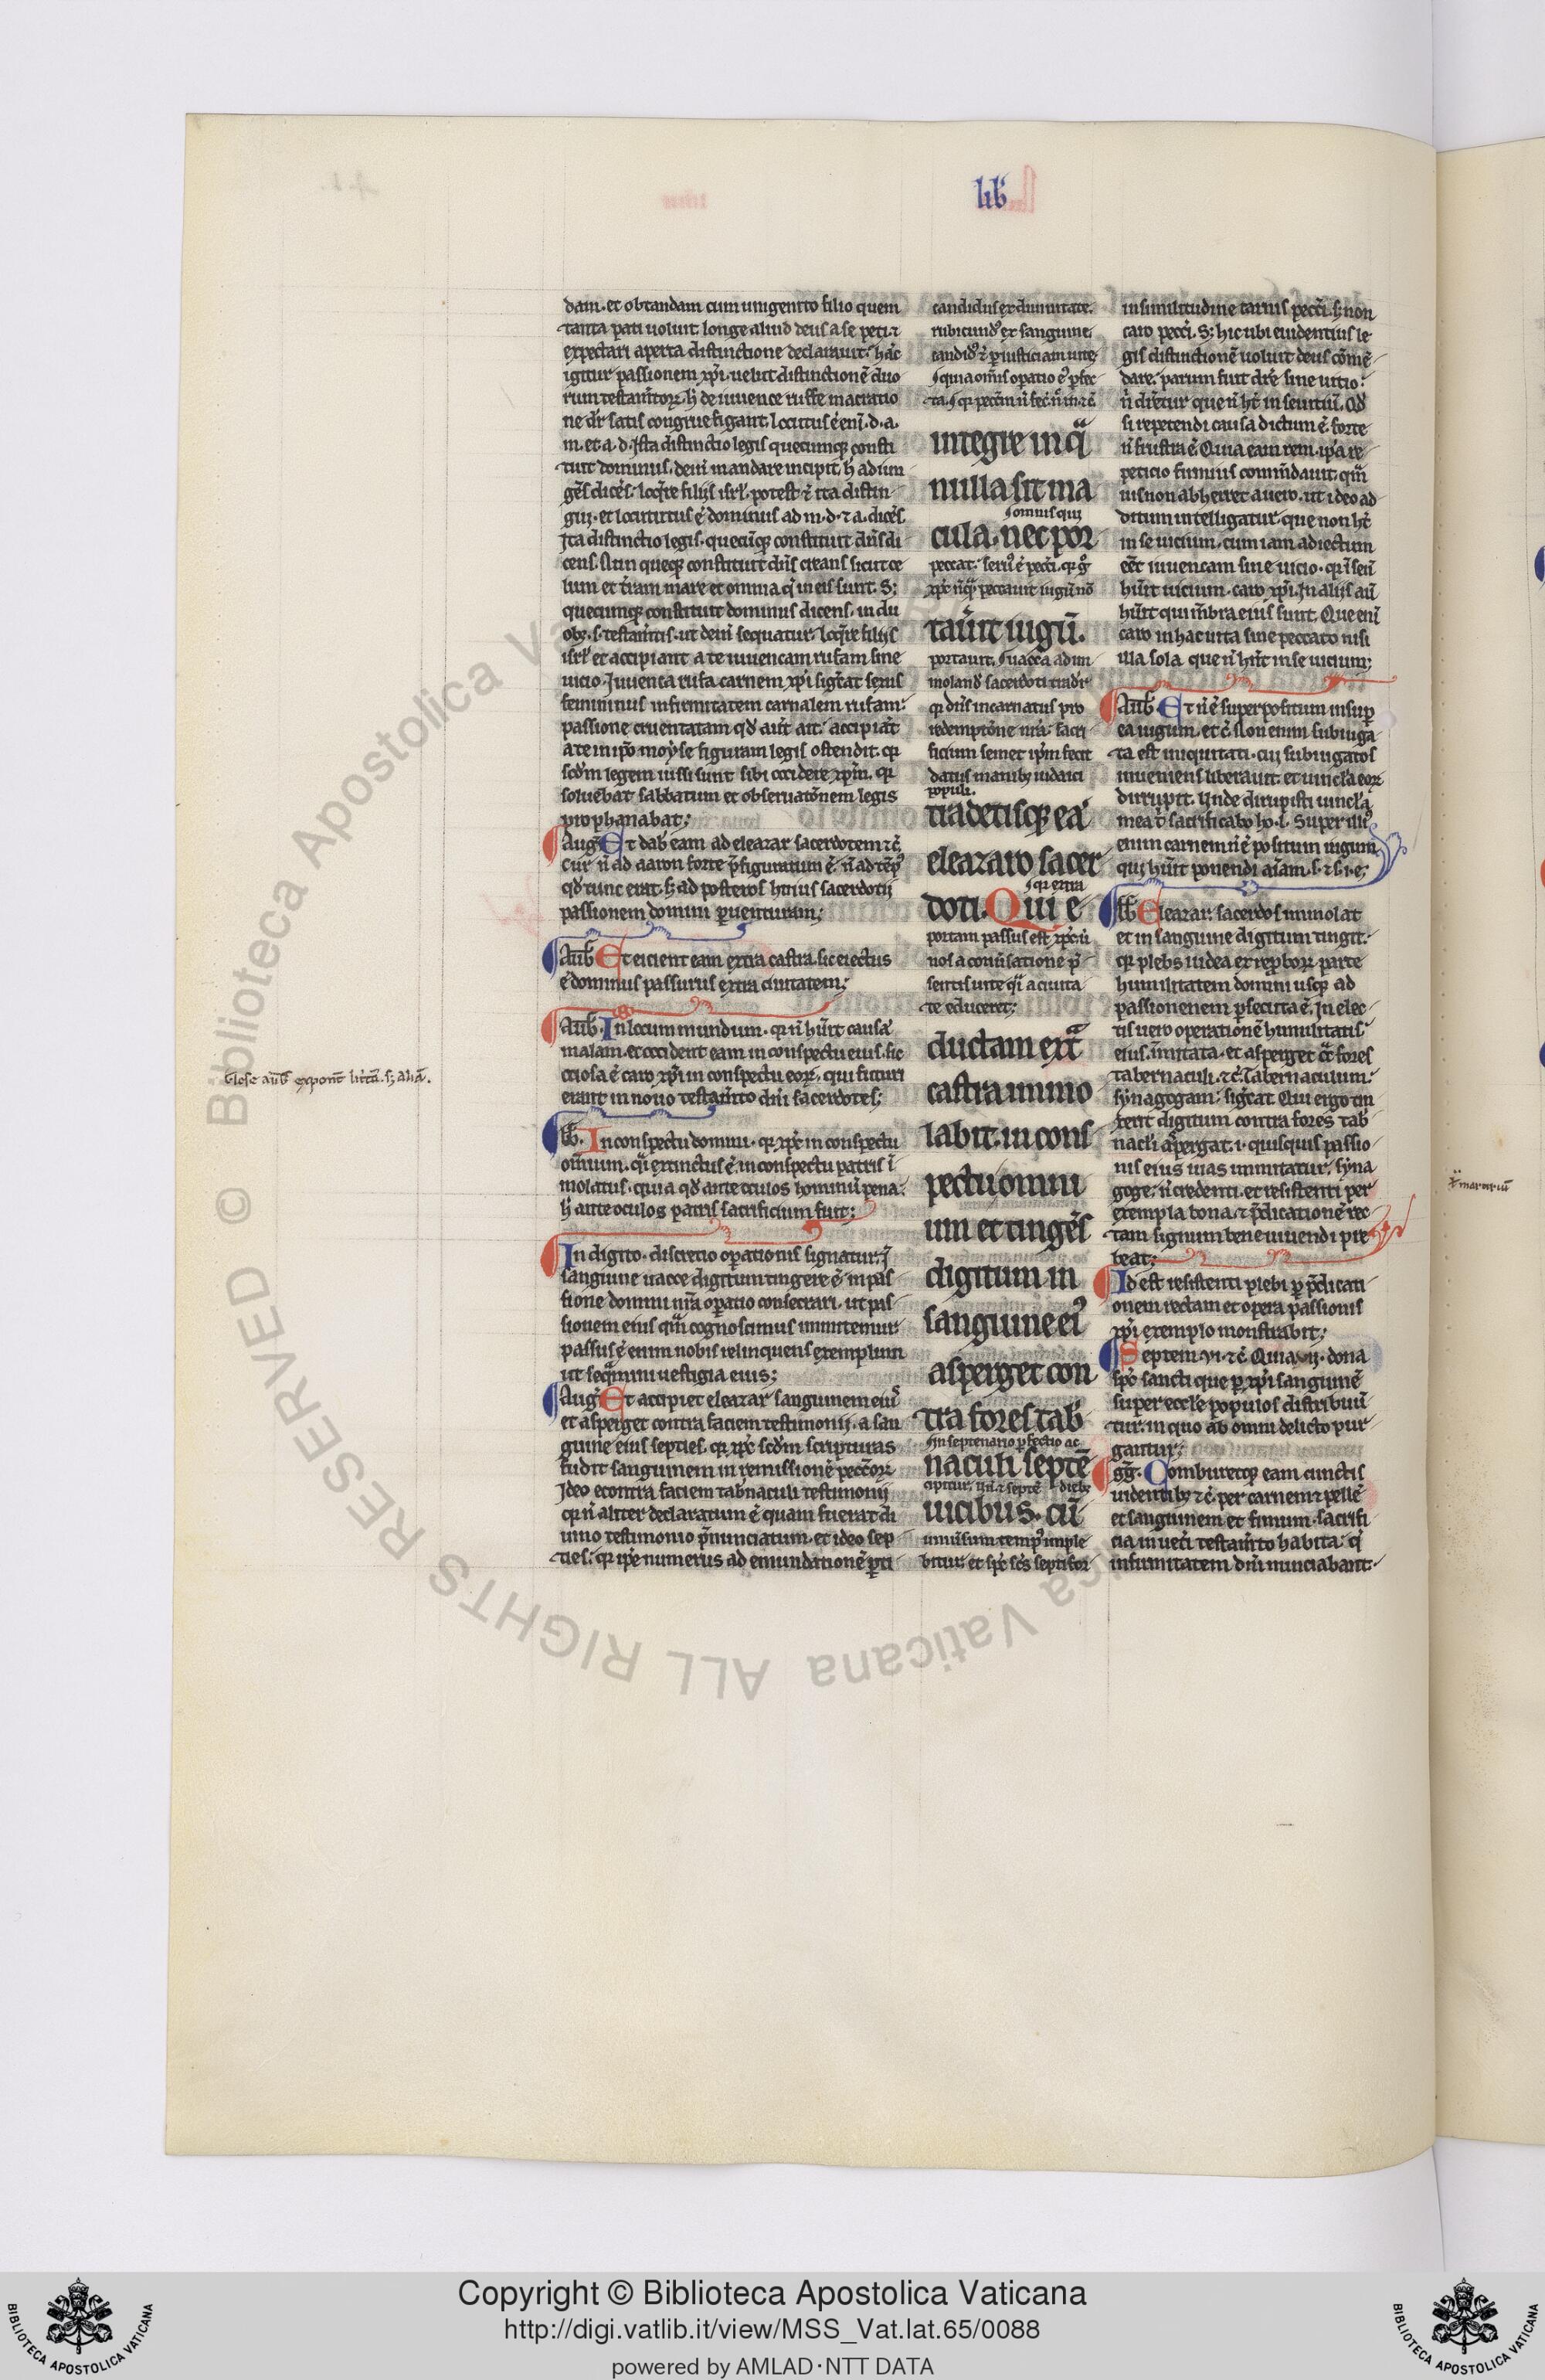 lib'
dam. et obtandam cum unigenito filio quem
tanta pati uoluit. longe aliud deus a se peti ⁊
expectari aperta distinctione declarauit. hac̄
igitur passionem xp̄i. uelut distinctionē duo
rum testam̄toꝝ. h̄ de iuuence ruffe mactatio
ne dr̄ satis congrue figant. locutus ē eni. d. a.
m. et a. d. Ista distinctio legis quecumqꝫ consti
tuit dominus. dein̄ mandare incipit. h̄ ad iun
gēs dicēs. loqr̄e filiis isrl'. potest ⁊ ita distin
gui. et locututus ē dominus ad m. d. ⁊ a. dicēs.
Ita distinctio legis. quecūqꝫ constituit dn̄s di
cens. sun queqꝫ constituit dn̄s creans sicut ce
lum et tr̄am mare et omnia q̄ in eis sunt. S;
quecumqꝫ constituit dominus dicens. in du
obꝫ. s. testam̄tis. ut dein̄ sequatur. loqr̄e filiis
isrl' et accipiant a te iuuencam rufam sine
uicio. Iuuenca rufa carnem xp̄i sigt̄at sexus
femininus infirmitatem carnalem rufam:
passione cruentatam qd' aut̄ ait. accipiāt
a te in ip̄o moyse figuram legis ostendit. qꝛ
scd'm legem iussi sunt sibi occidere xp̄m. qꝛ
soluebat sabbatum et obseruatōnem legis
prophanabat;
Aug᷒ Et dab̄ eam ad eleazar sacerdotem ⁊c̄
cur n̄ ad aaron forte p̄figuratum ē. n̄ ad tēp᷒
qd' tunc erat. h̄ ad posteros huius sacerdotii
passionem domini ꝑuenturam;
Aub̄ Et eicient eam extra castra. sic eiectus
ē dominus passurus extra ciuitatem;
Aub̄. In locum mundum. qꝛ n̄ hūit causā
malam. et occident eam in conspectu eius. sic
occisa ē caro xp̄i in conspectu eoꝝ. qui futuri
erant in nouo testam̄to dn̄i sacerdotes;
Glose aub̄ exponit̄ litt̄a. h̄ aliā.
In conspectu domini. qꝛ xp̄c in conspectu
om̄ium. q̄ extinctus ē in conspectu patris ī
molatus. quia qd' ante oculos hominū pena:
h̄ ante oculos patris sacrificium fuit;
In digito. discretio oꝑationis signatur. ī
sanguine uacce digitum tingere ē in pas
sione domini nr̄a oꝑatio consecrari. ut pas
sionem eius qm̄ cognoscimus immitemur.
passus ē enim nobis relinquens exemplum
ut seqm̄ini uestigia eius;
Aug᷒ Et accipiet eleazar sanguinem eiu᷒
et asperget contra faciem testimonii. a san
guine eius septies. qꝛ xp̄c scd'm scripturas
fudit sanguinem in remissionē pecc̄oꝝ
Ideo econtra faciem tab'naculi testimonii
qꝛ n̄ aliter declaratum ē quam fuerat di
uino testimonio p̄nunciatum. et ideo sep
ties. qꝛ ip̄e numerus ad emundationē ꝑti
candidus ex diuinitate.
rubicund᷒ ex sanguine.
candid᷒ ⁊ ꝑ iusticiam uite;
quia om̄is oꝑatio ei᷒ ꝑfec
ta.
integre in qͣ
nulla sit ma
omnis qui
cula. nec por
peccat. seru᷒ ē pecc̄i. qꝛ g᷒
xp̄c nūqͣ peccauit iugū nō
tau̅it iugū.
portauit. uacca ad im
moland' sacerdoti tradr̄
qꝛ dn̄s incarnatus pro
redemptōne nr̄a. sacri
ficium semet ip̄m fecit
datus manibꝫ iudaici
populi.
tradetisqꝫ eā
eleazaro sacer
qꝛ extra
doti. Qui e
portam passus est xp̄c ū
nos a conūsatione p̄
sentis uite q̄ a ciuita
te educeret;
ductam extͣ
castra immo
labit. in cons
pectu omni
um et tingēs
digitum in
sanguine ei᷒
asperget con
tra fores tab̄
In septenario ꝑfectio ac
naculi septē
cipitur. dieb;
uicibus. cū
uniūsum temp᷒ imple
bitur. et sp̄c sc̄s septifor
in similitudine carnis pecc̄i. h̄ non
caro pecc̄i. S; hic ubi euidentius le
gis distinctionē uoluit deus cōmē
dare. parum fuit dr̄e sine uitio:
n̄ dr̄etur que n̄ ht̄ in se uitiū. Qd'
si repetendi causa dictum ē forte
n̄ frustra ē. Quia eam rem. ip̄a re
peticio firmius commdauit. qm̄
uis non abherret a uero. ut ideo ad
ditum intelligatur. que non ht̄
in se uicium. cum iam adiectum
eēt iuuencam sine uicio. qꝛ n̄ seū
hūit uicium. caro xp̄i. In aliis aū
hūit qui m̄bra eius sunt. Que eni
caro in hac uita sine peccato nisi
illa sola que n̄ hūit in se uicium;
Aub̄ Et n̄ ē superpositum insuꝑ
ea iugum. et c̄. Non enim subiuga
ta est iniquitati. cui subiugatos
inueniens liberauit. et uincla eoꝝ
dirrupit. Unde dirupisti uincla
mea t̄ sacrificabo ho. l. Super illi᷒
enim carnem n̄ ē positum iugum
qui hūit ponendi aīam. s. ⁊ s. i. e;
Eleazar. sacerdos immolat
et in sanguine digitum tingit.
qꝛ plebs iudea ex reproboꝝ parte
humilitatem domini usqꝫ ad
passionenem ꝑsecuta ē. In elec
tis uero operationē humilitatis
eius. immitata. et asperget ct̄ fores
tabernaculi. ⁊c̄. Tabernaculum:
synagogam: sigt̄at. Qui ergo tin
xerit digitum contra fores tab̄
nacl'i aspergat. i. quisquis passio
nis eius uias immitatur. syna
goge. n̄ credenti. et resistenti per
exempla bona. ⁊ p̄dicationē rec
tam signum bene uiuendi pre
beat;
Id est resistenti plebi ꝑ p̄dicati
onem rectam et opera passionis
xp̄i exemplo monstrabit;
Septem. ui. ⁊c̄ Quia .vii. dona
sp̄c sancti que ꝑ xp̄i sanguinē
super eccl'e populos distribuū
tur. in quo ab omni delicto pur
gantur;
gg̅. Comburetqꝫ eam cunctis
uidentibꝫ ⁊c̄. per carnem ⁊ pellē
et sanguinem et fimum. sacrifi
cia in ueti testam̄to habita: q̄
infirmitatem dn̄i nunciabant.
Copyright © Biblioteca Apostolica Vaticana
http://digi.vatlib.it/view/MSS_Vat.lat.65/0088
powered by AMLAD·NTT DATA
BIBLIOTECA APOSTOLICA VATICANA
BIBLIOTECA APOSTOLICA VATICANA
© Biblioteca Apostolica Vaticana ALL RIGHTS RESERVED